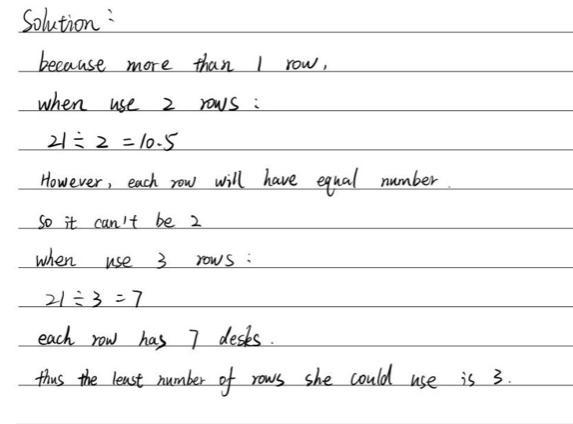 Solution:
because more than 1 row,
when use 2 rows:
21 ÷ 2 = 10.5
However, each row will have equal number.
so it can't be 2
when use 3 rows:
21 ÷ 3 = 7
each row has 7 desks.
thus the least number of rows she could use is 3.